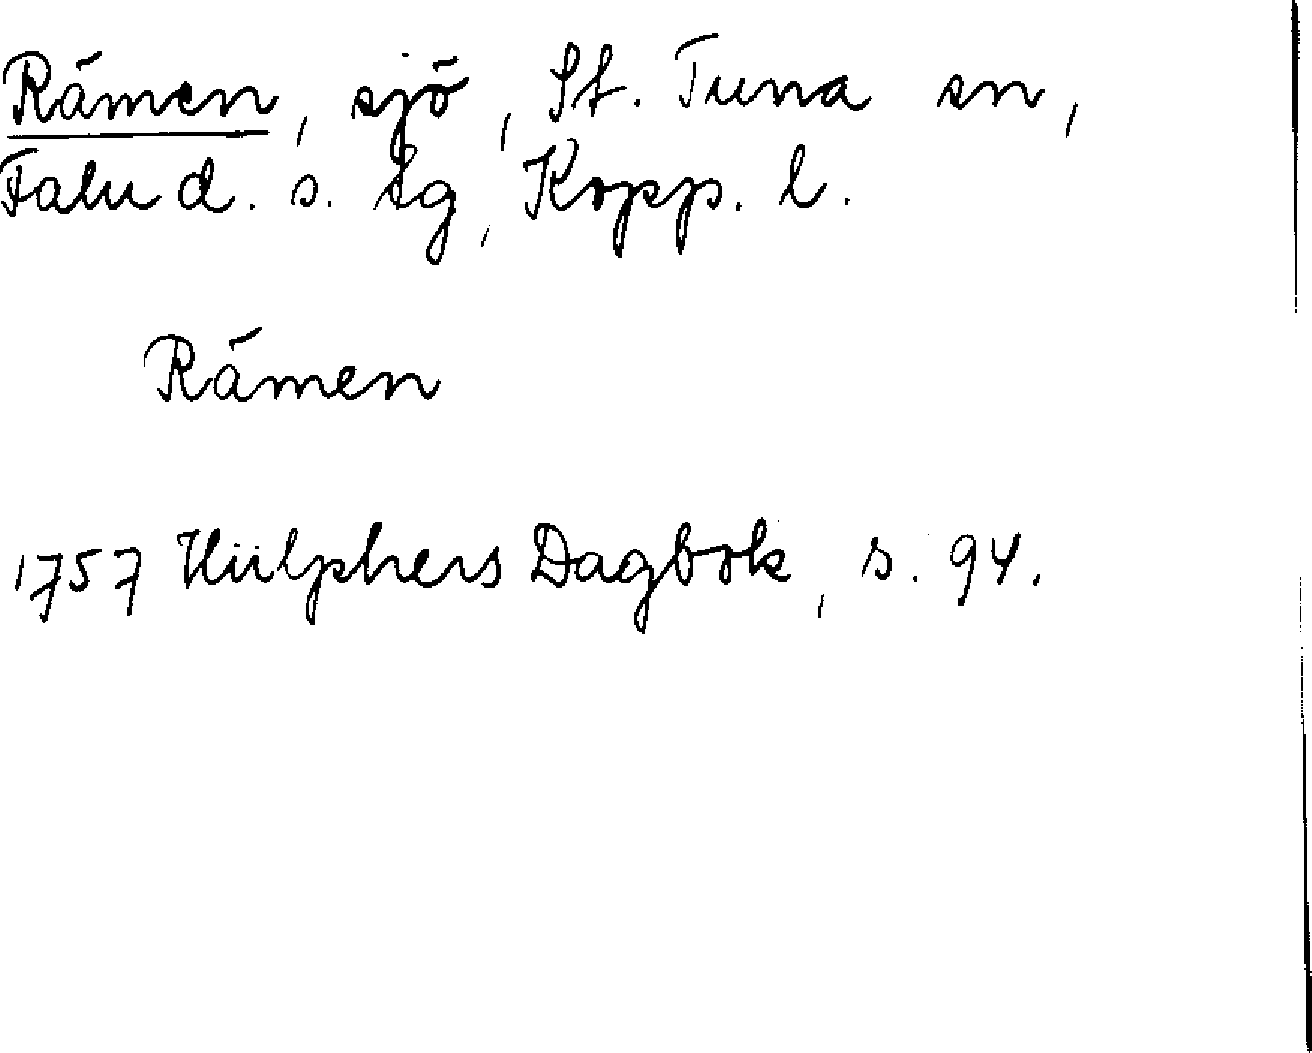 Rämen, sjö, St. Tuna sn,
Falu d. s. tg, Kopp. l.
Rämen
1757 Hülphers Dagbok, s. 94.